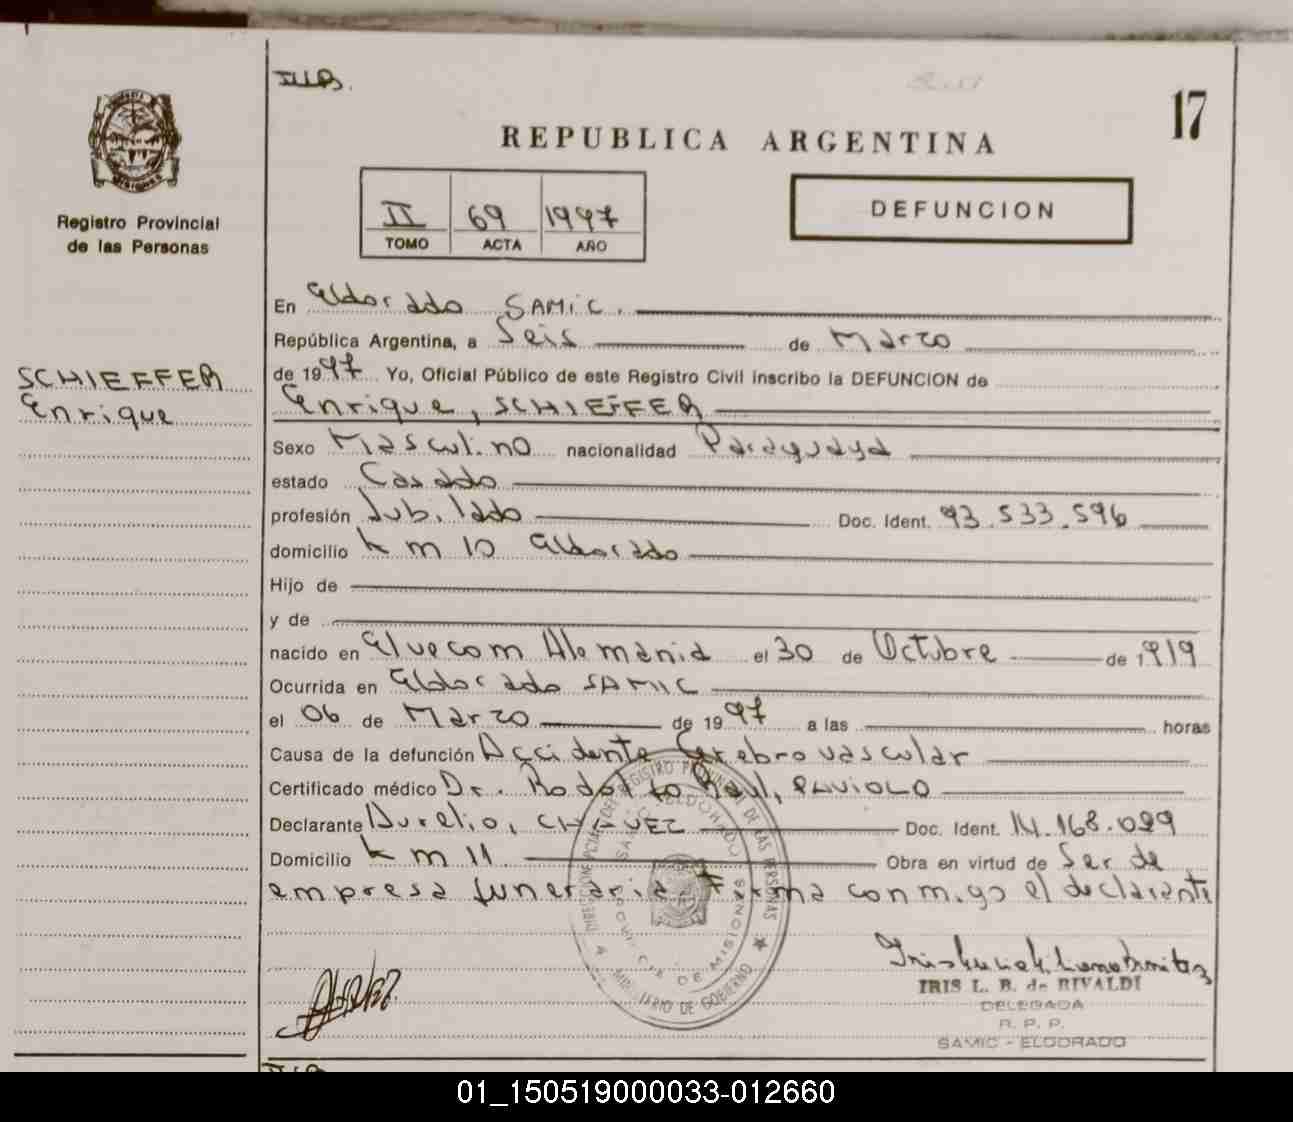 17
REPUBLICA ARGENTINA
MISIONES
Registro Provincial
de las Personas
II 69 1997
TOMO ACTA AÑO
DEFUNCION
En Eldorado SAMIC.
República Argentina, a Seis de Marzo
de 1997 Yo, Oficial Público de este Registro Civil inscribo la DEFUNCION de
SCHIEFFER
Enrique
Enrique, SCHIEFFER
Sexo Masculino nacionalidad Paraguaya
estado Casado
profesión Jubilado Doc. Ident. 93.533.596
domicilio km 10 Eldorado
Hijo de
y de
nacido en Alemania el 30 de Octubre de 1919
Ocurrida en Eldorado SAMIC
el 06 de Marzo de 1997 a las horas
Causa de la defunción Accidente Cerebro vascular
Certificado médico Dr. Rodolfo Raul,
Declarante Aurelio, CHAVEZ Doc. Ident. 14.168.099
Domicilio km 11 Obra en virtud de Ser de
empresa funeraria Firma conmigo el declarante
DIRECCION PCIAL. DEL REGISTRO PROVINCIAL DE LAS PERSONAS
SAMIC ELDORADO
PROVINCIA DE MISIONES
MINISTERIO DE GOBIERNO
IRIS L. B. de RIVALDI
DELEGADA
R. P. P.
SAMIC - ELDORADO
01_150519000033-012660